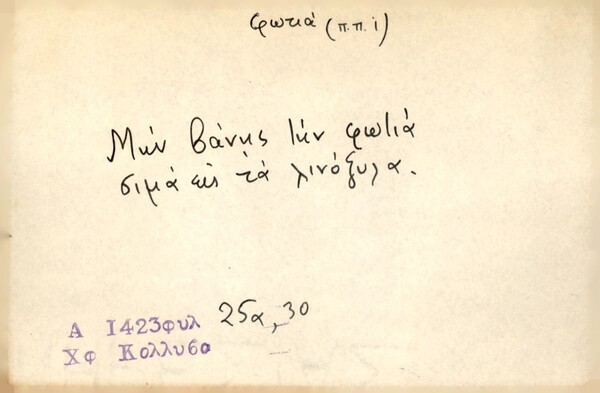 φωτιά (π.π.ι)
Μήν βάνης τήν φωτιά
σιμά εις τά λινόξυλα.
Α 1423φυλ 25α, 30
Χφ Κολλυβα